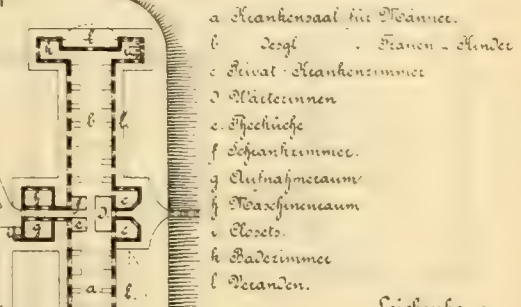 a Krankensaal für Männer.
b Desgl. Frauen-Kinder
c Privat-Krankenzimmer
d Wärterinnen
e. Theeküche
f Schrankzimmer.
g Aufnahmeraum
h Maschinenraum
i Closets.
k Badezimmer
l Veranden.